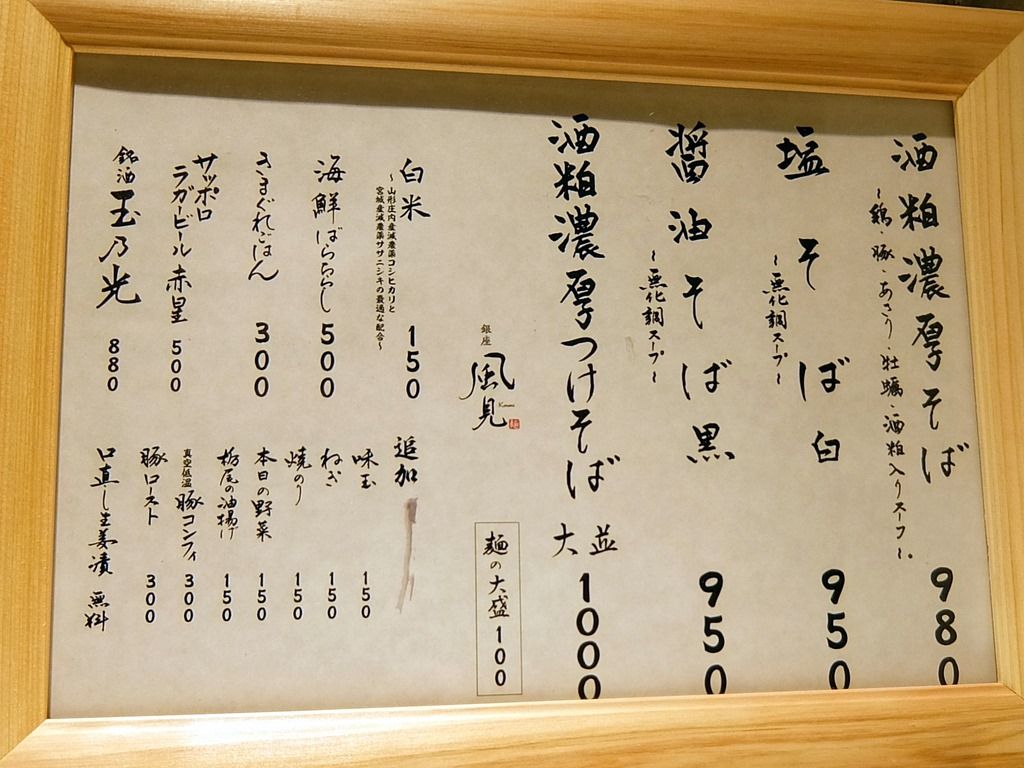 酒粕濃厚そば 980
~鶏・豚・あさり・牡蠣・酒粕入りスープ~
塩そば 白 950
~無化調スープ~
醤油そば 黒 950
~無化調スープ~
酒粕濃厚つけそば 並 大 1000
麺の大盛 100
銀座 風見
白米 150
~山形庄内産減農薬コシヒカリと
宮城産減農薬ササニシキの最適な配合~
海鮮ばらちらし 500
きまぐれごはん 300
サッポロ
ラガービール 赤星 500
銘酒 玉乃光 880
追加
味玉 150
ねぎ 150
焼のり 150
本日の野菜 150
栃尾の油揚げ 150
真空低温 豚コンフィ 300
豚ロースト 300
口直し生姜漬 無料